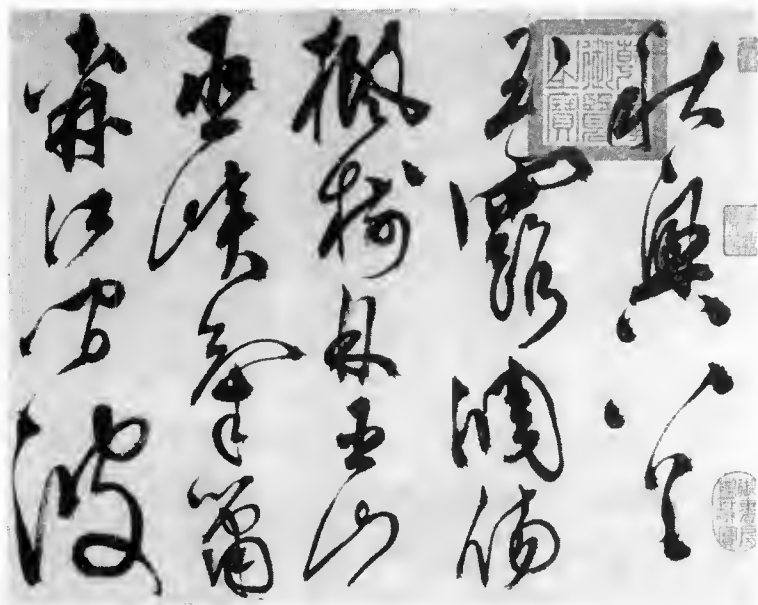 秋興八首
玉露凋傷
楓樹林巫山
巫峽氣蕭
森江間波
乾隆御覽之寶